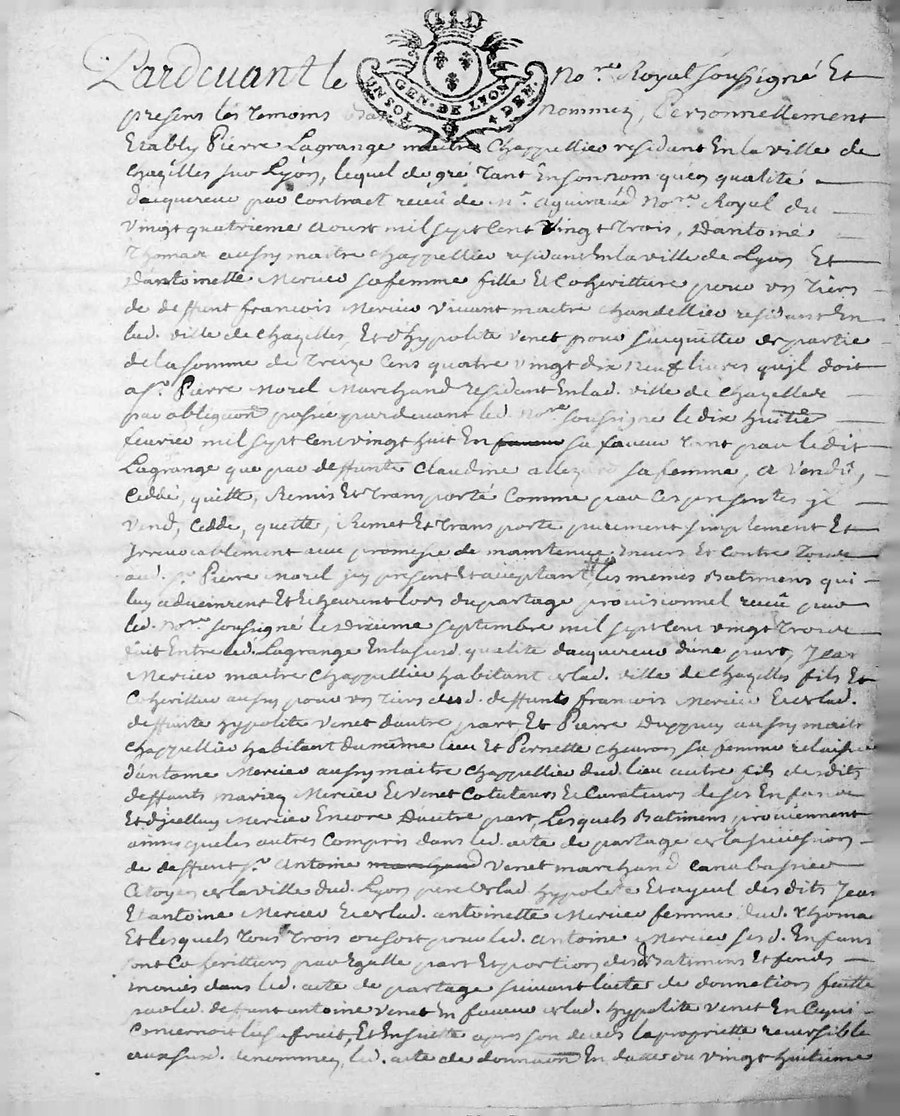 Pardevant le No.re Royal soussigné Et
GEN. DE LYON
UN SOL 4 DEN.
presens les temoins nommez, Personnellement
Etably Pierre Lagrange maitre Chappellier residant En la ville de
Chazelles sur Lyon, lequel de gré tant En son nom qu'en qualité
dacquereur par Contract receu de M.e No.re Royal du
vingt quatrieme aoust mil sept Cent vingt trois, d'antoine
Thomas aussy maitre chappellier residant En la ville de Lyon Et
d'antoinette Mercier sa femme fille Et Coheritiere pour un tiers
de deffunt francois Mercier vivant maitre Chandellier residant En
lad. ville de Chazelles Et d'hypolite venet pour s'acquitter de partie
de la somme de treize Cens quatre vingt dix neuf livres qu'il doit
a S.r Pierre Morel Marchand residant En lad. ville de Chazelles
par obligaon passée pardevant led. No.re soussigné le dix huitie
fevrier mil sept Cent vingt huit En sa faveur tant par ledit
Lagrange que par deffunte Claudine sa femme, a vendu,
Ceddé, quitté, Remis Et transporté Comme par Ces presentes il
vend, Cedde, quitte, Remet Et transporte purement simplement Et
Irrevocablement avec promesse de maintenue Envers Et contre tous
aud. S.r Pierre Morel icy present Et acceptant les memes Batimens qui
luy advinrent Et Echeurent lors du partage provisionnel receu par
led. No.re soussigné le dixieme septembre mil sept Cent vingt trois
fait Entre led. Lagrange En lasusd. qualité dacquereur d'une part, Jean
Mercier maitre Chappellier habitant de lad. ville de Chazelles fils Et
Coheritier aussy pour un tiers desd. deffunts francois Mercier Et de lad.
deffunte hypolite venet dautre part Et Pierre Duppuy aussy maitre
Chappellier habitant du même lieu Et Pernette Cheuron sa femme relaissée
d'antoine Mercier aussy maitre chappellier dud. lieu autre fils desdits
deffunts mariez Mercier Et venet Cotuteurs Et Curateurs de ses Enfans
Et d'jcelluy Mercier Encore Dautre part, Lesquels Batimens proviennent
ainsy que les autres Compris dans led. acte de partage de la succession
de deffunt S.r Antoine marchand venet marchand canabassier
Citoyen de la ville dud. Lyon pere de lad. hypolite Et ayeul desdits Jean
Et antoine Mercier Et de lad. antoinette Mercier femme dud. Thomas
Et lesquels tous trois ou soit pour led. Antoine Mercier sesd. Enfans
sont Coheritiers par Egalle part Et portion des Batimens Et fonds
dans led. acte de partage suivant lacte de donnation faitte
par led. deffunt antoine venet En faveur de lad. hypolite venet En Cequi
Concernoit lusufruit, Et Ensuitte apres son deces la proprieté reversible
auxsusd. denommez, led. acte de donnaon En datte du vingt huitieme